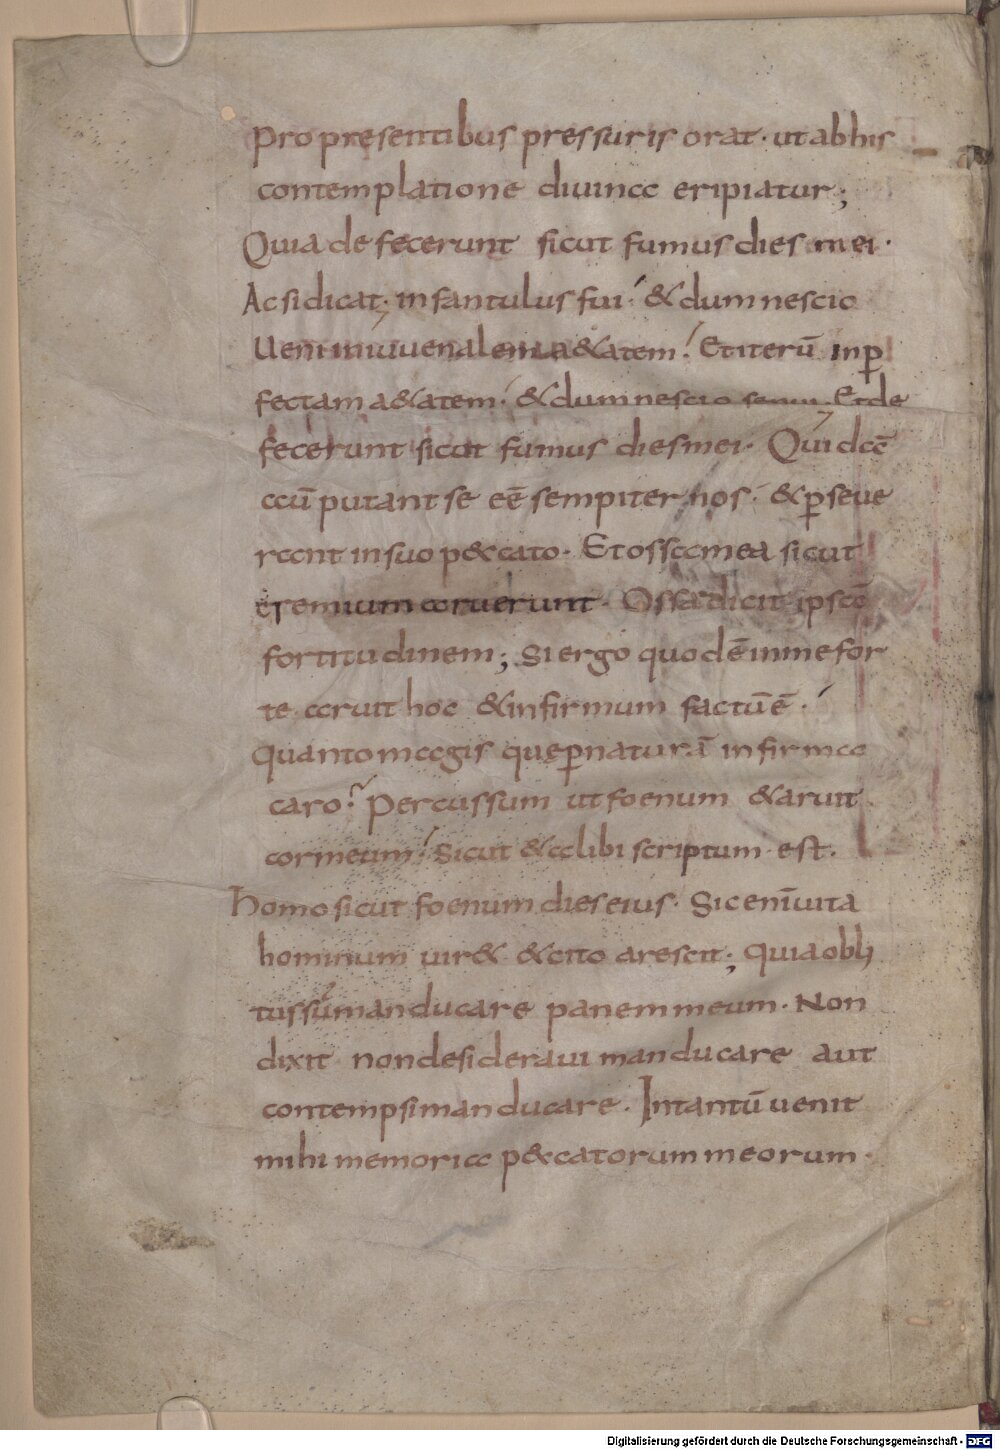 pro presentibus pressuris orat· ut ab his
contemplatione diuina eripiatur;
Quia defecerunt sicut fumus dies mei·
Ac si dicat· infantulus fui· & dum nescio
ueni in iuuenalem a&atem· Et iterū inp̲
fectam a&atem· & dum nescio Et de
fecerunt sicut fumus dies mei· Quidā
cū putant se eē sempiternos· & p̲seue
rant in suo p&cato· Et ossa mea sicut
cremium aruerunt· Ossa dicit ipsā
fortitudinem; Si ergo quod ē in me for
te aruit hoc & infirmum factū ē·
quanto magis que p̲ naturā infirma
caro? Percussum ut foenum & aruit
cor meum· Sicut & alibi scriptum est·
homo sicut foenum dies eius· Sic enī uita
hominum uir& & cito arescit; quia obli
tus sū manducare panem meum· Non
dixit non desideraui manducare aut
contempsi manducare· In tantū uenit
mihi memoria p&catorum meorum·
Digitalisierung gefördert durch die Deutsche Forschungsgemeinschaft - DFG